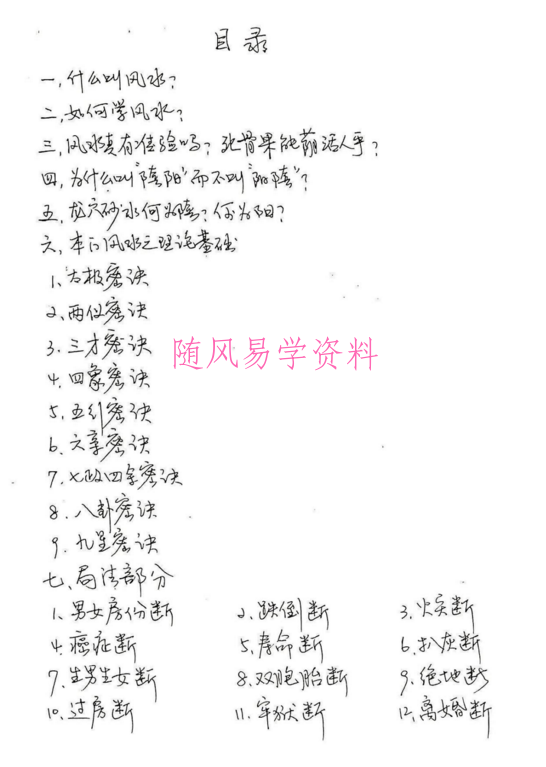 目录
一，什么叫风水？
二，如何学风水？
三，风水真有准验吗？死骨果能荫活人乎？
四，为什么叫"阴阳"而不叫"阳阴"？
五，龙穴砂水何为阴？何为阳？
六，本门风水之理论基础
1、太极密诀
2、两仪密诀
3、三才密诀
随风易学资料
4、四象密诀
5、五行密诀
6、六亲密诀
7、七政四余密诀
8、八卦密诀
9、九星密诀
七、局法部分
1、男女房份断 2、跌倒断 3、火灾断
4、癌症断 5、寿命断 6、扒灰断
7、生男生女断 8、双胞胎断 9、绝地断
10、过房断 11、牢狱断 12、离婚断